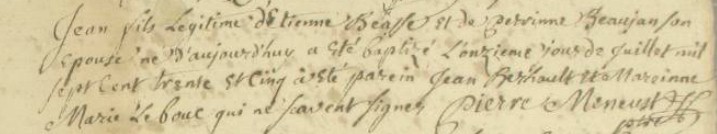 Jean fils Legitime d'Etienne Beasse et de perrinne Beaujan son
Epouse né d'aujourd'huy a esté baptizé L'onzieme jour de juillet mil
sept cent trente et cinq a esté parein Jean Berhault et Mareinne
Marie Le bouc qui ne scavent signer Pierre Meneust
ptre